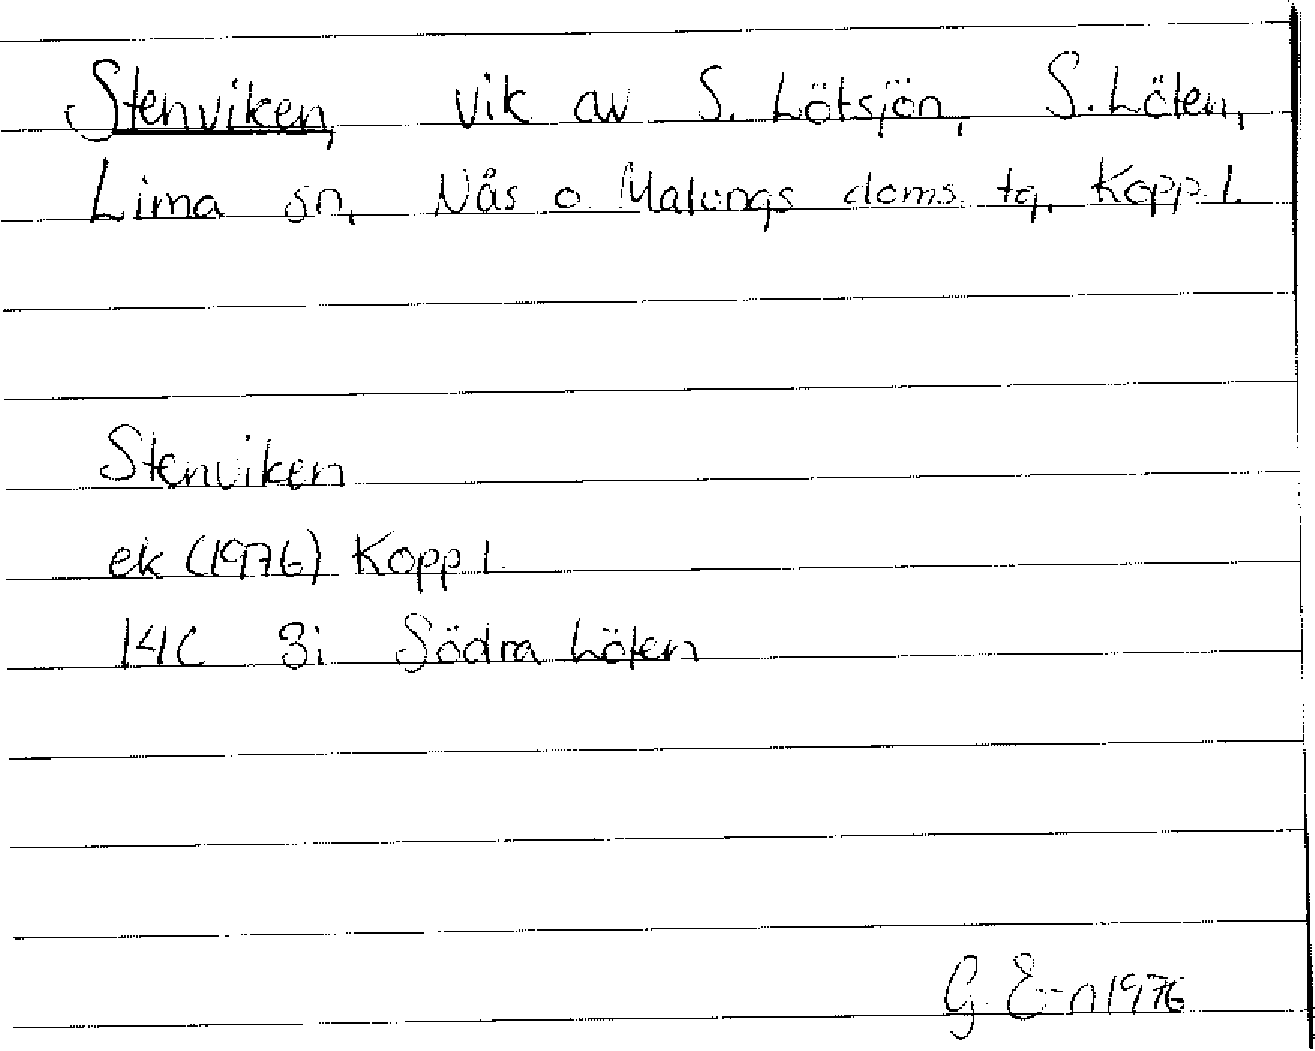 Stenviken, vik av S. Lötsjön, S. Löten,
Lima sn, Nås o. Malungs doms. tg. Kopp. l.
Stenviken
ek (1976) Kopp. l.
14C 3i Södra Löten
G. E-n 1976